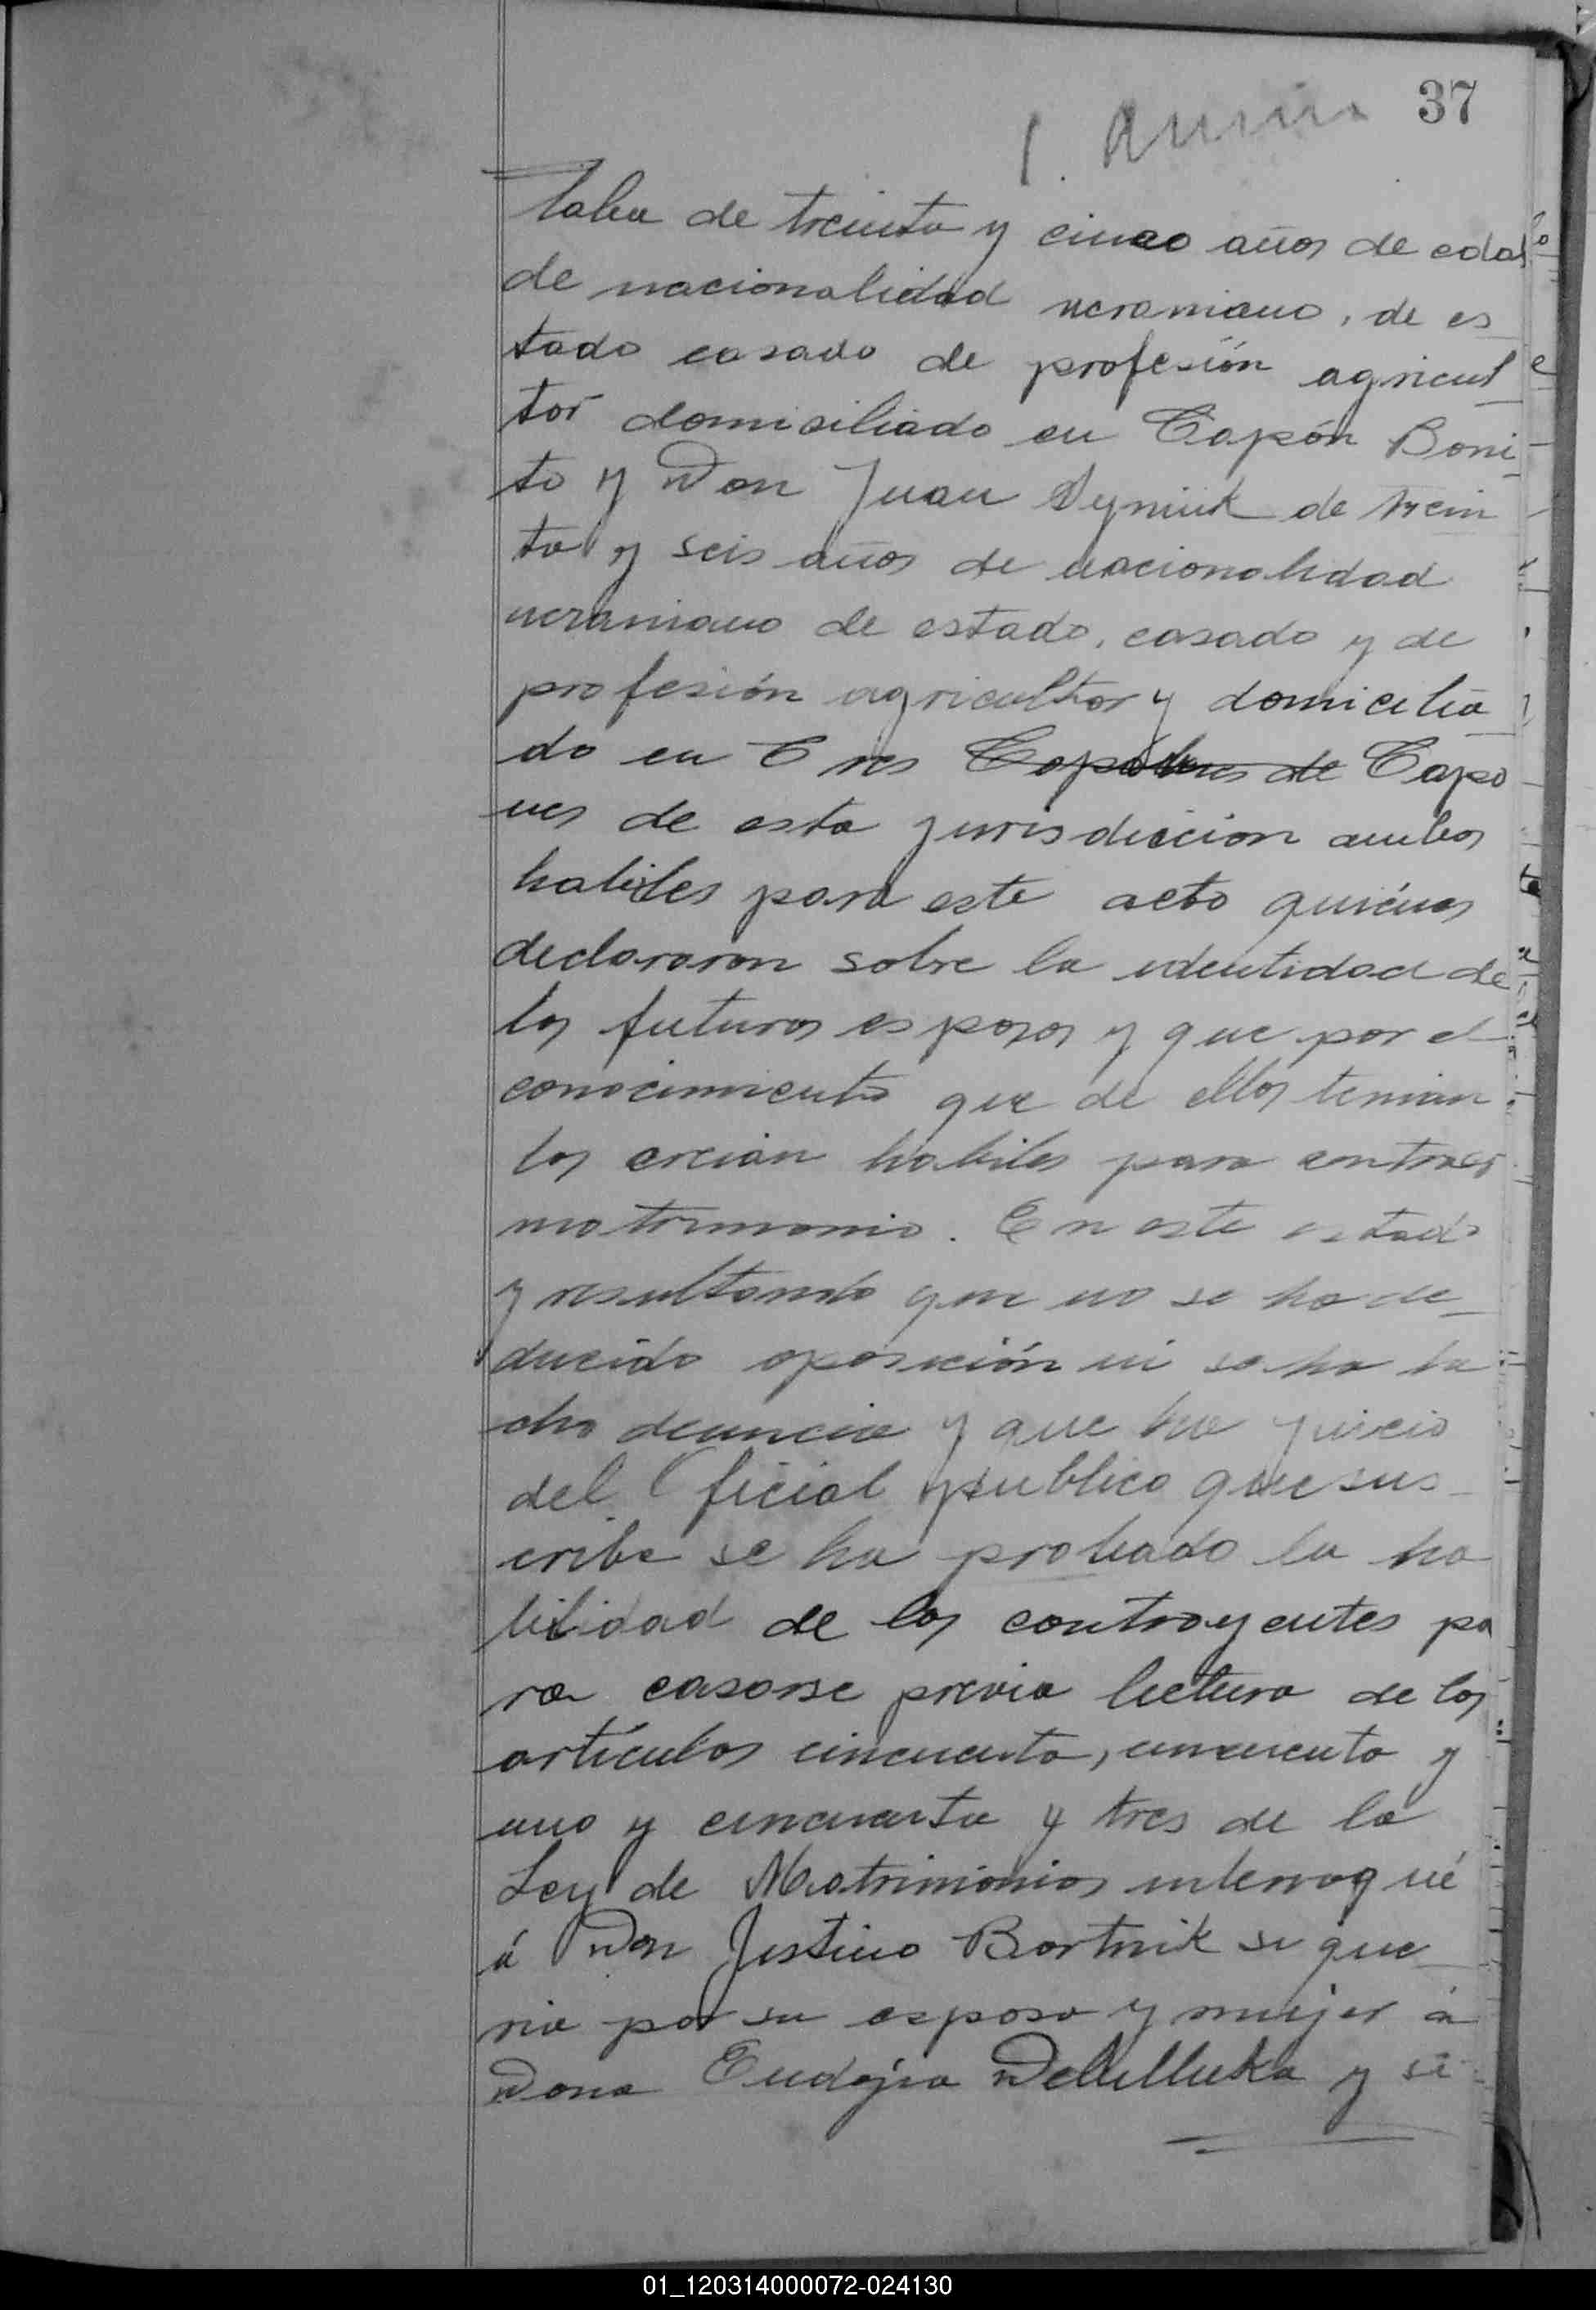 37
de treinta y cinco años de edad
de nacionalidad ucraniano, de es
tado casado de profesión agricul
tor domisiliado en Capón Boni
to y Don Juan de trein
ta y seis años de nacionalidad
ucraniano de estado, casado y de
profesión agricultor y domicilia
do en Tres Capo
nes de esta jurisdiccion ambos
habiles para este acto quiénes
declararon sobre la identidad de
los futuros esposos y que por el
conocimiento que de ellos tenian
los creían habiles para contraer
matrimonio. En este estado
y resultando que no se ha de
ducido oposición ni se ha he
cho denuncia y que ha juicio
del Oficial publico que sus
cribe se ha probado la ha
bilidad de los contrayentes pa
ra casarse previa lectura de los
artículos cincuenta, cincuenta y
uno y cincuenta y tres de la
Ley de Matrimonios interrogué
á Don Justino Bortnik si que
ria por su esposa y mujer á
Dona Eudojia y si
01_120314000072-024130